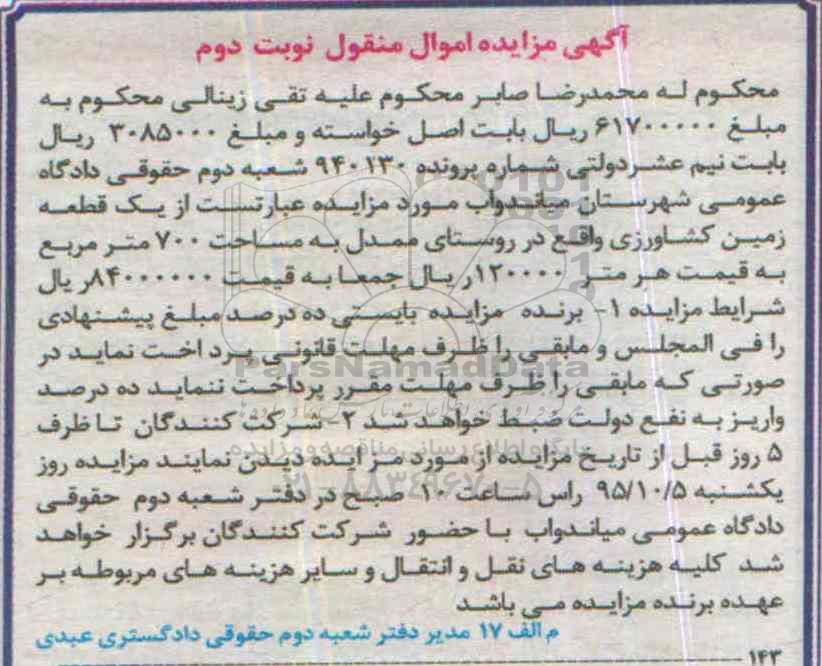 آگهی مزایده اموال منقول نوبت دوم
محکوم له محمدرضا صابر محکوم علیه تقی زینالی محکوم به
مبلغ ۶۱۷۰۰۰۰۰ ریال بابت اصل خواسته و مبلغ ۳۰۸۵۰۰۰ ریال
بابت نیم عشردولتی شماره پرونده ۹۴۰۱۳۰ شعبه دوم حقوقی دادگاه
عمومی شهرستان میاندواب مورد مزایده عبارتست از یک قطعه
زمین کشاورزی واقع در روستای ممدل به مساحت ۷۰۰ متر مربع
به قیمت هر متر ۱۲۰۰۰۰ر یال جمعا به قیمت ۸۴۰۰۰۰۰۰ر یال
شرایط مزایده ۱- برنده مزایده بایستی ده درصد مبلغ پیشنهادی
را فی المجلس و مابقی را ظرف مهلت قانونی پرد اخت نماید در
صورتی که مابقی را ظرف مهلت مقرر پرداخت ننماید ده درصد
واریز به نفع دولت ضبط خواهد شد ۲- شرکت کنندگان تا ظرف
۵ روز قبل از تاریخ مزایده از مورد مز ایده دیدن نمایند مزایده روز
یکشنبه ۹۵/۱۰/۵ راس ساعت ۱۰ صبح در دفتر شعبه دوم حقوقی
دادگاه عمومی میاندواب با حضور شرکت کنندگان برگزار خواهد
شد کلیه هزینه های نقل و انتقال و سایر هزینه های مربوطه بر
عهده برنده مزایده می باشد
م الف ۱۷ مدیر دفتر شعبه دوم حقوقی دادگستری عبدی
۱۴۳
ParsNamadData
پایگاه اطلاع رسانی مناقصه و مزایده
۰۲۱-۸۸۳۴۹۶۷۰-۵